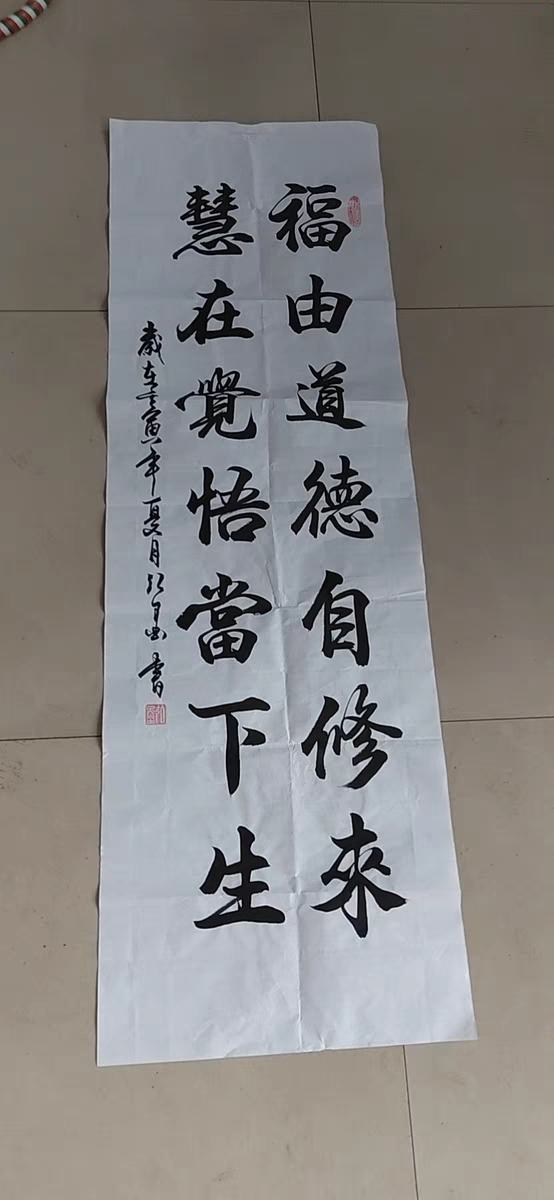 福由道德自修來
慧在覺悟當下生
歲在壬寅年夏月 書